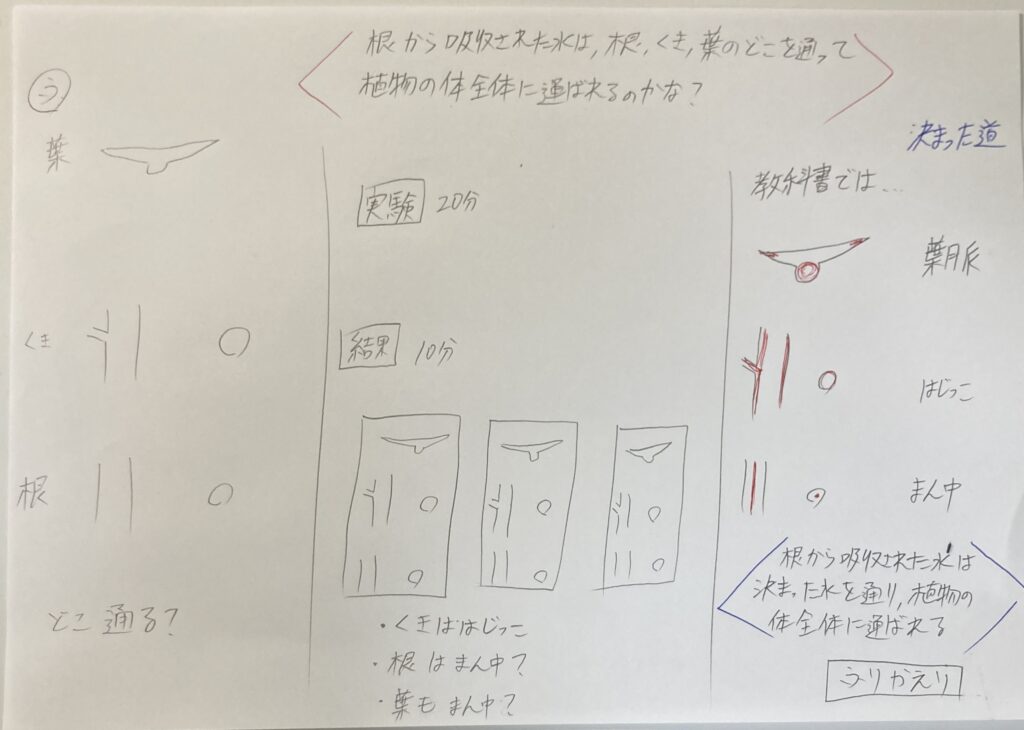 根から吸収された水は,根,くき,葉のどこを通って
植物の体全体に運ばれるのかな?
う
葉
くき
根
どこ通る?
実験 20分
結果 10分
・くきははじっこ
・根はまん中?
・葉もまん中?
決まった道
教科書では...
葉脈
はじっこ
まん中
根から吸収された水は
決まった水を通り,植物の
体全体に運ばれる
ふりかえり